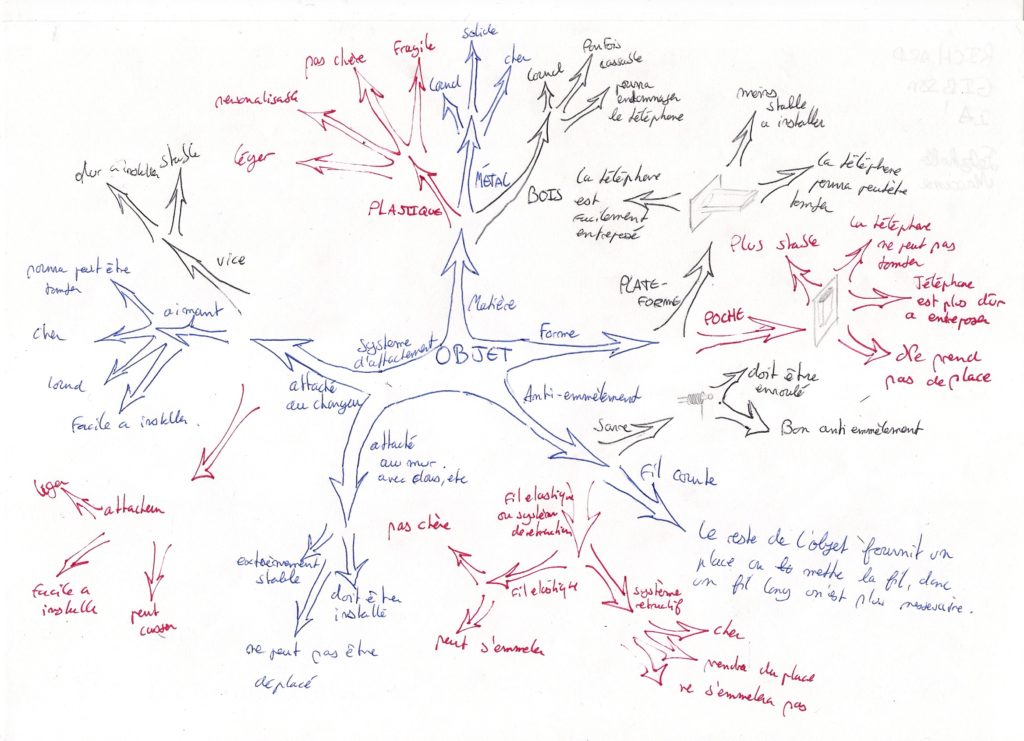 OBJET
Matière
PLASTIQUE
léger
personalisable
pas chère
Fragile
MÉTAL
lourd
solide
cher
BOIS
lourd
Parfois
cassable
pourra
endommager
le téléphone
Forme
PLATE-
FORME
La téléphone
est
facilement
entreposé
moins
stable
a installer
La téléphone
pourra peutêtre
tomber
POCHE
Plus stable
la téléphone
ne peut pas
tomber
Téléphone
est plus dur
a entreposer
Ne prend
pas de place
Anti-emmêlement
doit être
enroulé
Bon anti emmêlement
Fil courte
Le reste de l'objet fournit un
place ou mettre la fil, donc
un fil long n'est plus nessesaire.
Fil elastique
ou système
de retraction
Fil elastique
pas chère
peut s'emmeler
système
retractif
cher
rendra du place
ne s'emmelera pas
Système
d'attachement
attaché
au chargeur
attaché
au mur
avec clous, etc
extrèmement
stable
doit être
installé
ne peut pas être
deplacé
vice
dur a installer
stable
aimant
pourra peut être
tomber
cher
lourd
Facile a installer.
attacheur
léger
facile a
installe
peut
casser
RICHARD
GIBSON